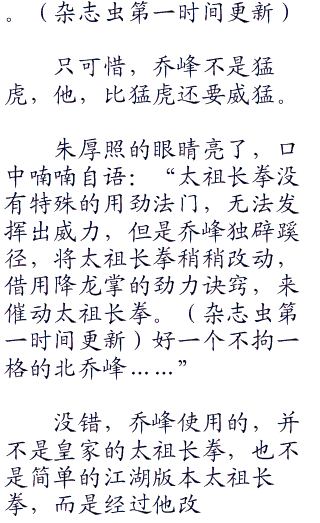 。（杂志虫第一时间更新）
只可惜，乔峰不是猛
虎，他，比猛虎还要威猛。
朱厚照的眼睛亮了，口
中喃喃自语：“太祖长拳没
有特殊的用劲法门，无法发
挥出威力，但是乔峰独辟蹊
径，将太祖长拳稍稍改动，
借用降龙掌的劲力诀窍，来
催动太祖长拳。（杂志虫第
一时间更新）好一个不拘一
格的北乔峰……”
没错，乔峰使用的，并
不是皇家的太祖长拳，也不
是简单的江湖版本太祖长
拳，而是经过他改